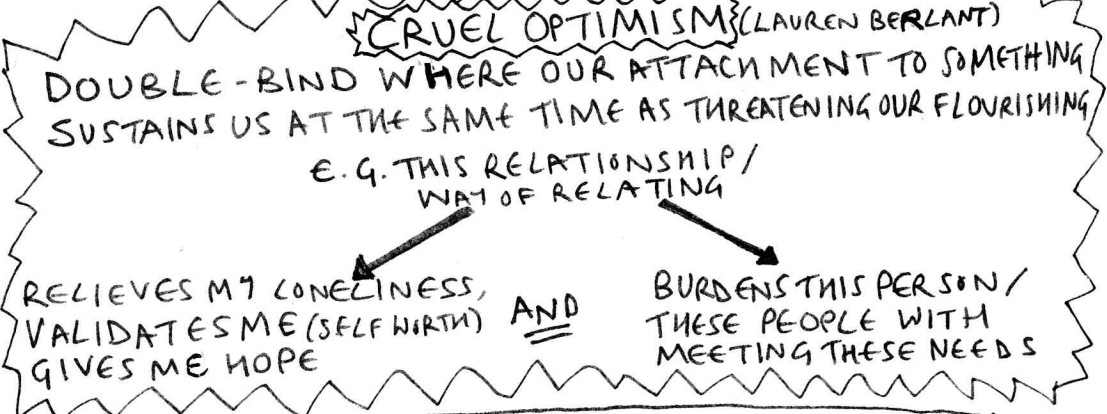 CRUEL OPTIMISM (LAUREN BERLANT)
DOUBLE-BIND WHERE OUR ATTACHMENT TO SOMETHING
SUSTAINS US AT THE SAME TIME AS THREATENING OUR FLOURISHING
E.G. THIS RELATIONSHIP/
WAY OF RELATING
RELIEVES MY LONELINESS,
VALIDATES ME (SELF WORTH)
GIVES ME HOPE
AND
BURDENS THIS PERSON/
THESE PEOPLE WITH
MEETING THESE NEEDS